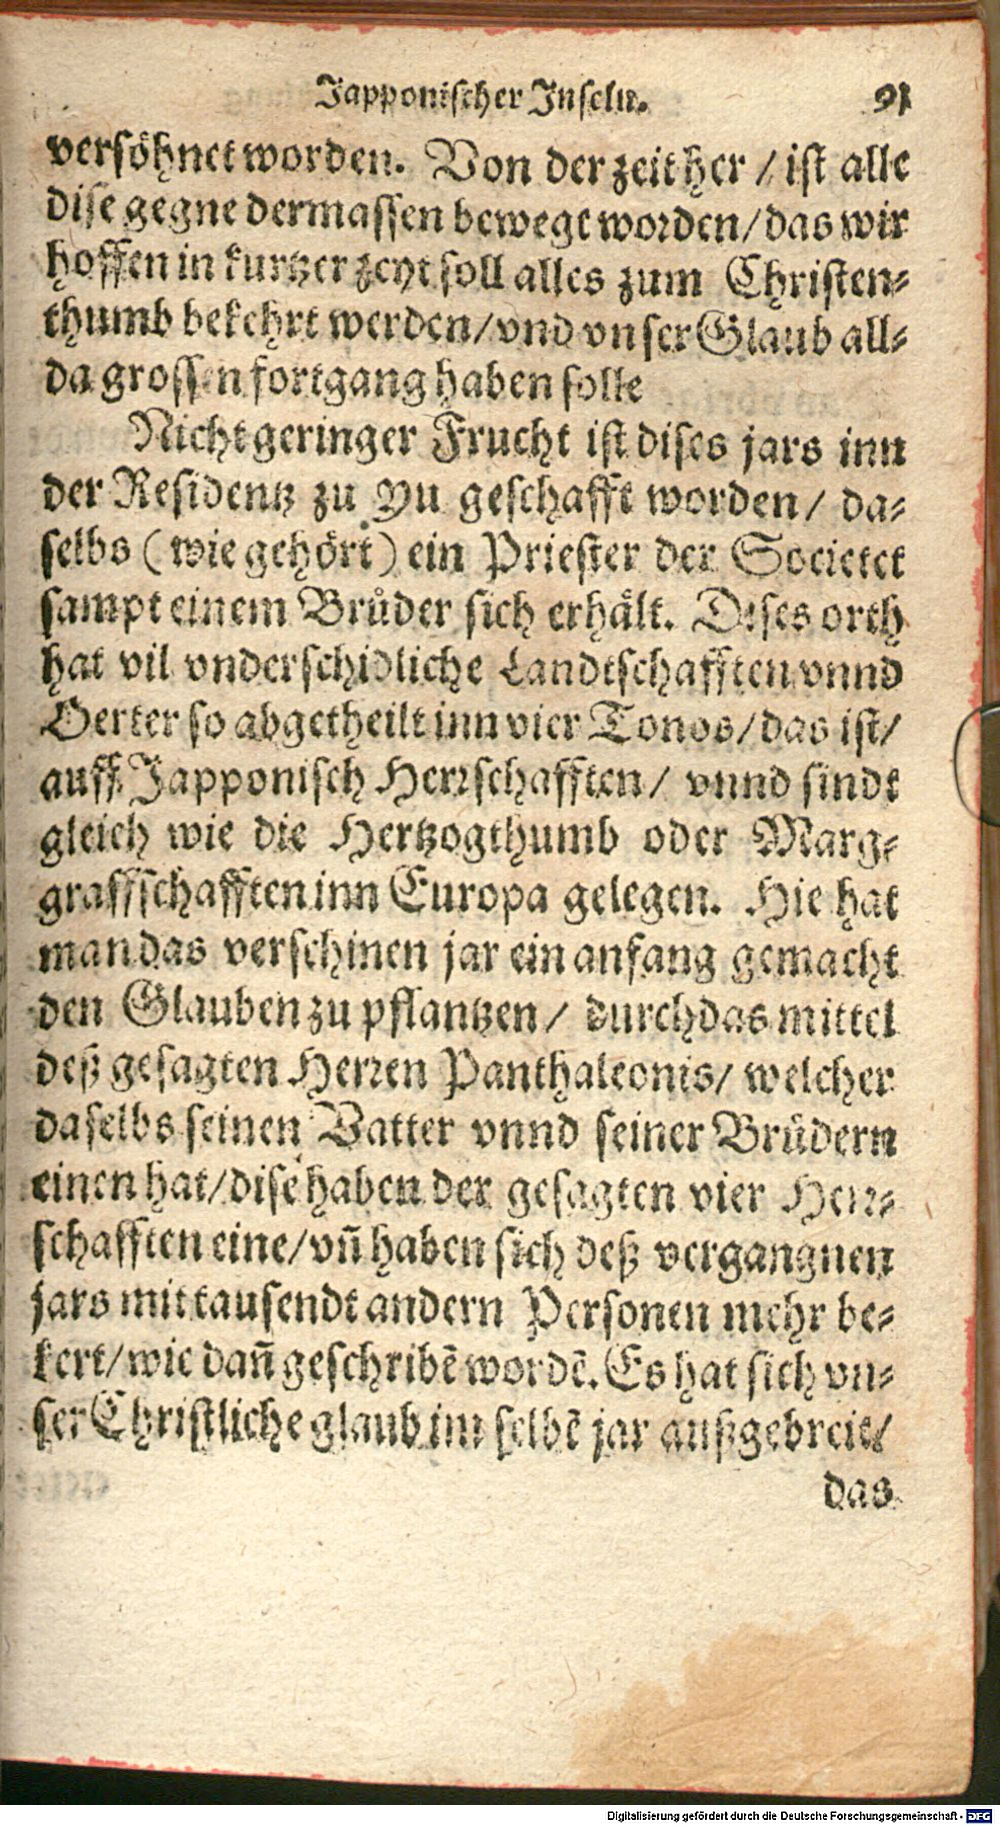 Japponischer Inseln. 91
versöhnet worden. Von der zeit her / ist alle
dise gegne dermassen bewegt worden/das wir
hoffen in kurtzer zeyt soll alles zum Christen-
thumb bekehrt werden/vnd vnser Glaub all-
da grossen fortgang haben solle
Nicht geringer Frucht ist dises jars inn
der Residentz zu Yu geschafft worden/ da-
selbs (wie gehört) ein Priester der Societet
sampt einem Brůder sich erhält. Dises orth
hat vil vnderschidliche Landtschafften vnnd
Oerter so abgetheilt inn vier Tonos/das ist/
auff Japponisch Herrschafften/ vnnd sindt
gleich wie die Hertzogthumb oder Marg-
graffschafften inn Europa gelegen. Hie hat
man das verschinen jar ein anfang gemacht
den Glauben zu pflantzen/ durch das mittel
deß gesagten Herren Panthaleonis/ welcher
daselbs seinen Vatter vnnd seiner Brůdern
einen hat/dise haben der gesagten vier Herr-
schafften eine/vñ haben sich deß vergangnen
jars mit tausendt andern Personen mehr be-
kert/wie dañ geschribẽ wordẽ. Es hat sich vn-
ser Christliche glaub im selbẽ jar außgebreit/
das
Digitalisierung gefördert durch die Deutsche Forschungsgemeinschaft - DFG